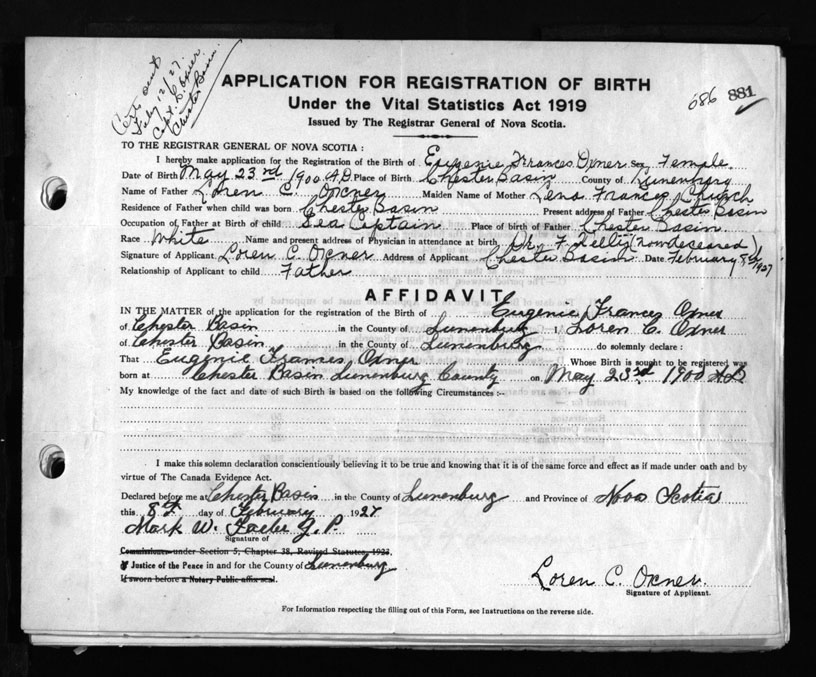 Cert. sent
Feby 12/27.
Capt. L. C. Oxner
Chester Basin.
APPLICATION FOR REGISTRATION OF BIRTH
686 881
Under the Vital Statistics Act 1919
Issued by The Registrar General of Nova Scotia.
TO THE REGISTRAR GENERAL OF NOVA SCOTIA :
I hereby make application for the Registration of the Birth of Eugenie Frances Oxner Sex Female
Date of Birth May 23rd 1900 A.D. Place of Birth Chester Basin County of Lunenburg
Name of Father Loren C. Oxner Maiden Name of Mother Lena Frances Church
Residence of Father when child was born Chester Basin Present address of Father Chester Basin
Occupation of Father at Birth of child Sea Captain Place of birth of Father Chester Basin
Race White Name and present address of Physician in attendance at birth F. (now deceased)
Signature of Applicant Loren C. Oxner Address of Applicant Chester Basin Date February 1927
Relationship of Applicant to child Father
AFFIDAVIT
IN THE MATTER of the application for the registration of the Birth of Eugenie Frances Oxner
of Chester Basin in the County of Lunenburg I, Loren C. Oxner
of Chester Basin in the County of Lunenburg do solemnly declare :
That Eugenie Frances Oxner Whose Birth is sought to be registered was
born at Chester Basin Lunenburg County on May 23rd 1900 A.D.
My knowledge of the fact and date of such Birth is based on the following Circumstances :-
I make this solemn declaration conscientiously believing it to be true and knowing that it is of the same force and effect as if made under oath and by
virtue of The Canada Evidence Act.
Declared before me at Chester Basin in the County of Lunenburg and Province of Nova Scotia
this 8th day of February 1927
Mark W. J. P.
Signature of
Commissioner under Section 5, Chapter 38, Revised Statutes, 1923.
Justice of the Peace in and for the County of Lunenburg
If sworn before a Notary Public affix seal.
Loren C. Oxner.
Signature of Applicant.
For Information respecting the filling out of this Form, see Instructions on the reverse side.